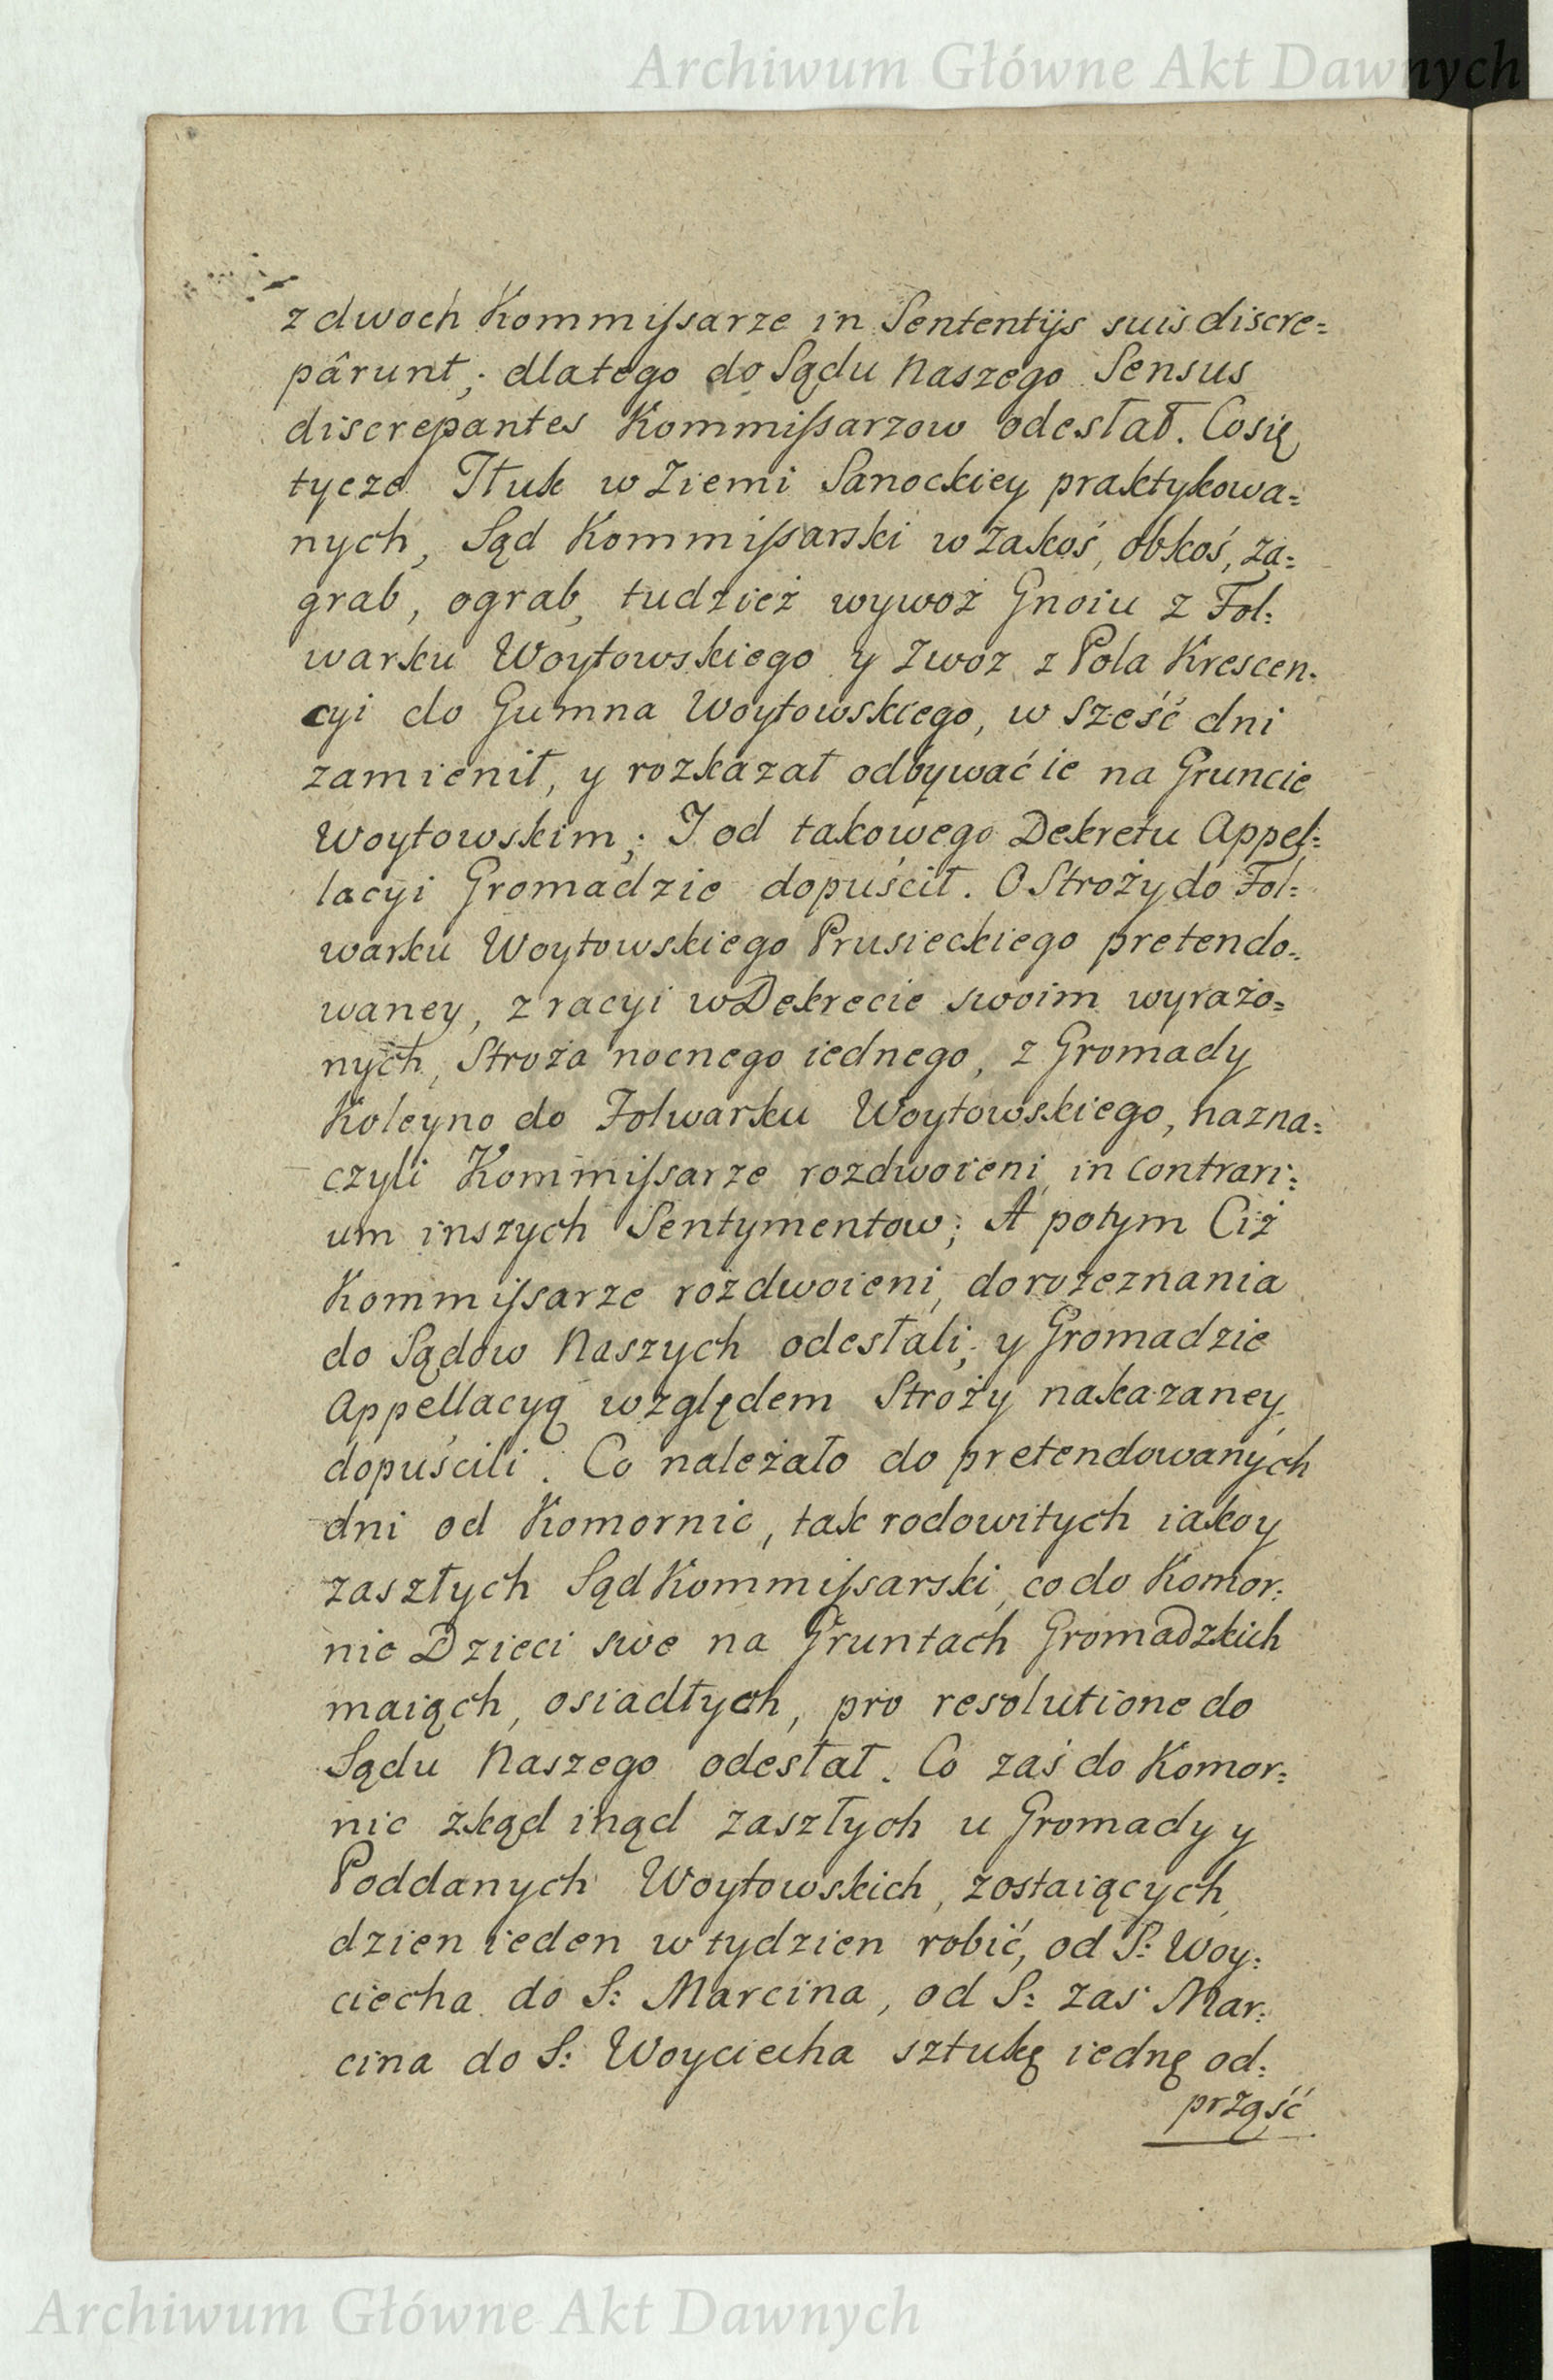 Archiwum Główne Akt Dawnych
z dwoch Kommiſsarze in Sententijs suis discre=
pârunt; dlatego do Sądu Naszego Sensus
discrepantes Kommiſsarzow odesłał. Co się
tycze Tłuk w Ziemi Sanockiey praktykowa=
nych, Sąd Kommiſsarski w Zakoś, obkoś, za=
grab, ograb, tudzież wywoż Gnoiu z Fol=
warku Woytowskiego y Zwoz z Pola Krescen=
cyi do Gumna Woytowskiego, w sześć dni
zamienił, y rozkazał odbywać ie na Gruncie
Woytowskim; I od takowego Dekretu Appel=
lacyi Gromadzie dopuścił. O Stroży do Fol=
warku Woytowskiego Prusieckiego pretendo=
waney, z racyi w Dekrecie swoim wyrażo=
nych, Stroża nocnego iednego, z Gromady
Koleyno do Folwarku Woytowskiego, nazna=
czyli Kommiſsarze rozdwoieni in contrari=
um inszych Sentymentow; A potym Ciż
Kommiſsarze rozdwoieni, do rozeznania
do Sądow Naszych odesłali; y Gromadzie
Appellacyą względem Stroży nakazaney
dopuścili. Co należało do pretendowanych
dni od Komornic, tak rodowitych iako y
zaszłych Sąd Kommiſsarski, co do Komor=
nic Dzieci swe na Gruntach Gromadzkich
maiąch, osiadłych, pro resolutione do
Sądu Naszego odesłał. Co zaś do Komor=
nic zkąd inąd zaszłych u Gromady y
Poddanych Woytowskich, zostaiących,
dzien ieden w tydzien robić, od S: Woy=
ciecha do S: Marcina, od S: zaś Mar=
cina do S: Woyciecha sztukę iednę od=
prząść
Archiwum Główne Akt Dawnych